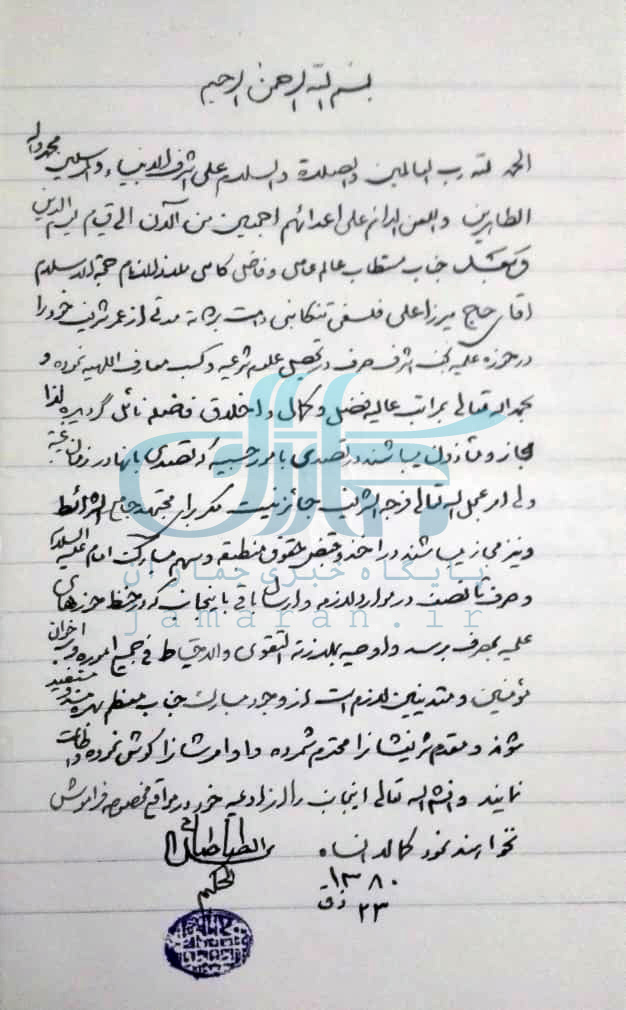 بسم الله الرحمن الرحیم
الحمد لله رب العالمین والصلاة والسلام علی اشرف الانبیاء والمرسلین محمد واله
الطاهرین واللعن الدائم علی اعدائهم اجمعین من الآن الی قیام یوم الدین
وبعد جناب مستطاب عالم عامل وفاضل کامل ملاذ الانام حجة الاسلام
آقای حاج میرزا علی فلسفی تنکابنی دامت برکاته مدتی از عمر شریف خود را
در حوزه علمیه نجف اشرف صرف در تحصیل علوم شرعیه و کسب معارف الهیه نموده و
بحمد الله تعالی بمراتب عالیه فضل و کمال و اخلاق فاضله نائل گردیده لذا
مجاز و مأذون میباشند در تصدی بامور حسبیه که تصدی بآنها در زمان غیبة
ولی امر عجل الله تعالی فرجه الشریف جائز نیست مگر برای مجتهد جامع الشرائط
ونیز مجاز میباشند در اخذ وقبض حقوق منطبقه وسهم مبارک امام علیه السلام
و صرف تا نصف در موارد لازمه وارسال باقی باینجانب که در حفظ حوزهای
علمیه بمصرف برسد واوصیه بملازمة التقوی والاحتیاط فی جمیع الامور و بر اخوان
مؤمنین و متدینین لازم است از وجود مبارک جناب معظم بهره مند و مستفید
شوند و مقدم شریفشانرا محترم شمرده واوامرشانرا گوش نموده واطاعت
نمایند وانشاء الله تعالی اینجانب را از ادعیه خود در مواقع مخصوصه فراموش
نخواهند نمود کما لا انساه
محسن الطباطبائی
الحکیم
۱۳۸۰
۲۳ ذق
جماران
پایگاه خبری جماران
jamaran.ir